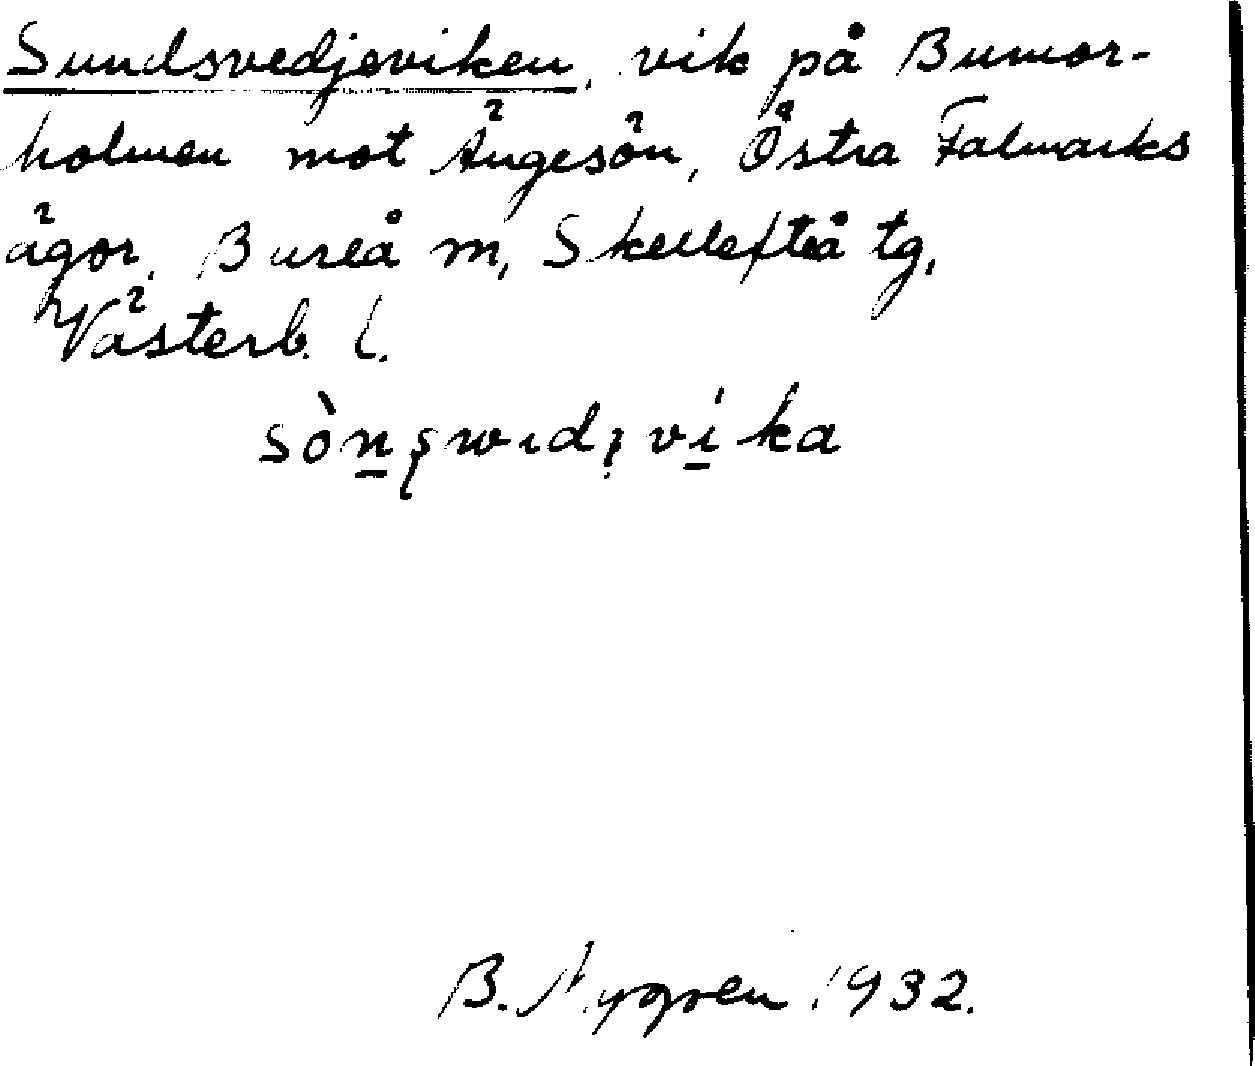 Sundsvedjeviken, vik på Bumor-
holmen mot Ängesön, Östra Falmarks
ägor, Bureå m, Skellefteå tg,
Västerb. l.
B. Nygren 1932.